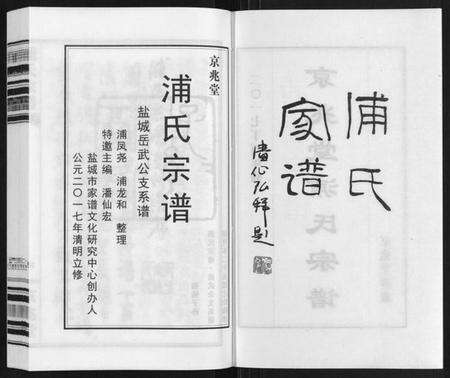 浦氏
家谱
京兆堂
浦氏宗谱
盐城岳武公支系谱
浦凤尧 浦龙和 整理
特邀主编 潘仙宏
盐城市家谱文化研究中心创办人
公元二〇一七年清明立修